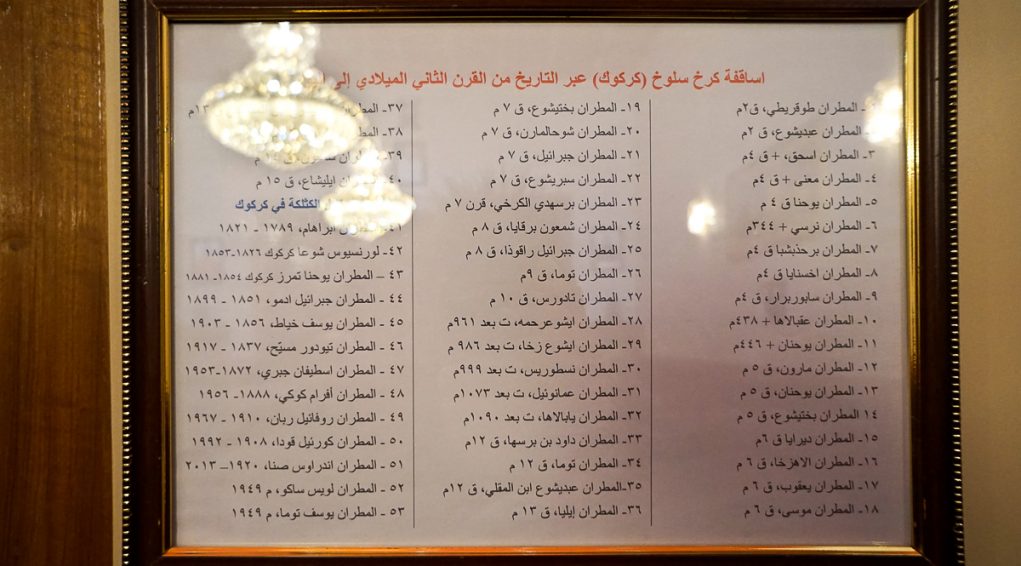 اساقفة كرخ سلوخ (كركوك) عبر التاريخ من القرن الثاني الميلادي إلى
المطران طوقريطي، ق٢م
المطران عبديشوع، ق ٢م
٣ـ المطران اسحق، + ق ٤م
٤ـ المطران معنى + ق ٤م
٥ـ المطران يوحنا ق ٤ م
٦ـ المطران نرسي + ٣٤٤م
٧ـ المطران برحذبشبا ق ٤م
٨ـ المطران اخسنايا ق ٤م
٩ـ المطران سابوربرار، ق ٤م
١٠ـ المطران عقبالاها + ٤٣٨م
١١ـ المطران يوحنان + ٤٤٦م
١٢ـ المطران مارون، ق ٥ م
١٣ـ المطران يوحنان، ق ٥ م
١٤ المطران بختيشوع، ق ٥ م
١٥ـ المطران ديرايا ق ٦م
١٦ـ المطران الاهزخا، ق ٦ م
١٧ـ المطران يعقوب، ق ٦ م
١٨ـ المطران موسى، ق ٦ م
١٩ـ المطران بختيشوع، ق ٧ م
٢٠ـ المطران شوحالمارن، ق ٧ م
٢١ـ المطران جبرائيل، ق ٧ م
٢٢ـ المطران سبريشوع، ق ٧ م
٢٣ـ المطران برسهدي الكرخي، قرن ٧ م
٢٤ـ المطران شمعون برقايا، ق ٨ م
٢٥ـ المطران جبرائيل راقوذا، ق ٨ م
٢٦ـ المطران توما، ق ٩م
٢٧ـ المطران تادورس، ق ١٠ م
٢٨ـ المطران ايشوعرحمه، ت بعد ٩٦١م
٢٩ـ المطران ايشوع زخا، ت بعد ٩٨٦ م
٣٠ـ المطران نسطوريس، ت بعد ٩٩٩م
٣١ـ المطران عمانوئيل، ت بعد ١٠٧٣م
٣٢ـ المطران يابالاها، ت بعد ١٠٩٠م
٣٣ـ المطران داود بن برسها، ق ١٢م
٣٤ـ المطران توما، ق ١٢ م
٣٥ـالمطران عبديشوع ابن المقلي، ق ١٢م
٣٦ـ المطران إيليا، ق ١٣ م
٣٧ـ المطران
٣٨ـ المطران
٣٩ـ المطران
٤٠ـ المطران ايليشاع، ق ١٥ م
الكثلكة في كركوك
٤١ـ المطران ابراهام، ١٧٨٩ - ١٨٢١
٤٢ـ لورنسيوس شوعا كركوك ١٨٢٦ـ١٨٥٣
٤٣ – المطران يوحنا تمرز كركوك ١٨٥٤ـ ١٨٨١
٤٤ ـ المطران جبرائيل ادمو، ١٨٥١ - ١٨٩٩
٤٥ - المطران يوسف خياط، ١٨٥٦ - ١٩٠٣
٤٦ ـ المطران تيودور مسيّح، ١٨٣٧ - ١٩١٧
٤٧ - المطران اسطيفان جبري، ١٨٧٢ـ١٩٥٣
٤٨ ـ المطران أفرام كوكي، ١٨٨٨ـ ١٩٥٦
٤٩ - المطران روفائيل ربان، ١٩١٠ - ١٩٦٧
٥٠ - المطران كورئيل قودا، ١٩٠٨ - ١٩٩٢
٥١ - المطران اندراوس صنا، ١٩٢٠– ٢٠١٣
٥٢ - المطران لويس ساكو، م ١٩٤٩
٥٣ - المطران يوسف توما، م ١٩٤٩